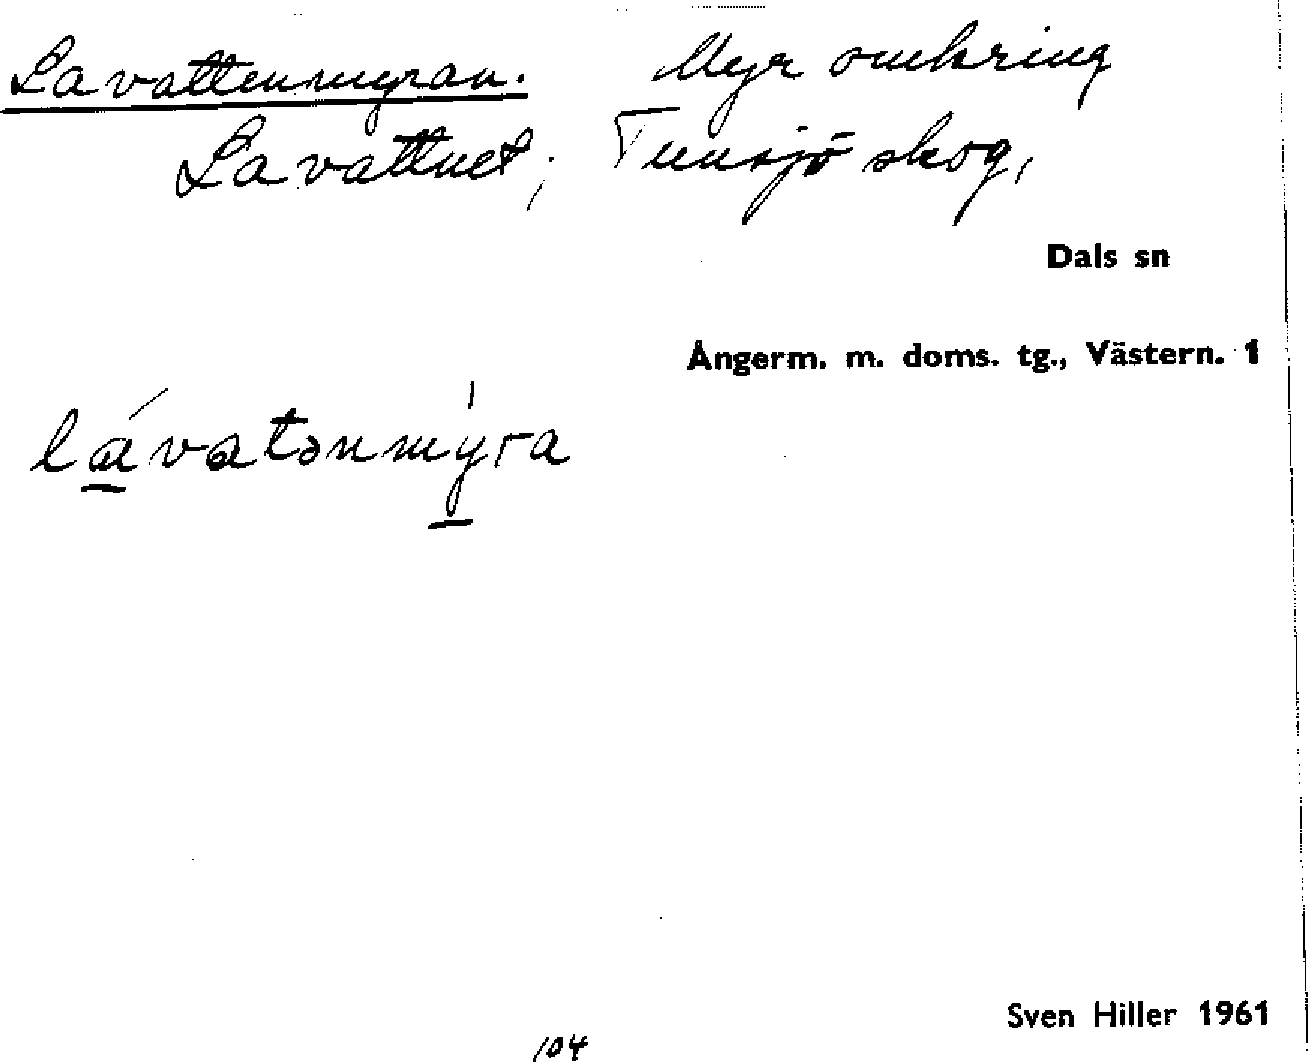 Lavattenmyran. Myr omkring
Lavattnet; Tunsjö skog,
Dals sn
Ångerm. m. doms. tg., Västern. 1
lávatənmýra
Sven Hiller 1961
104